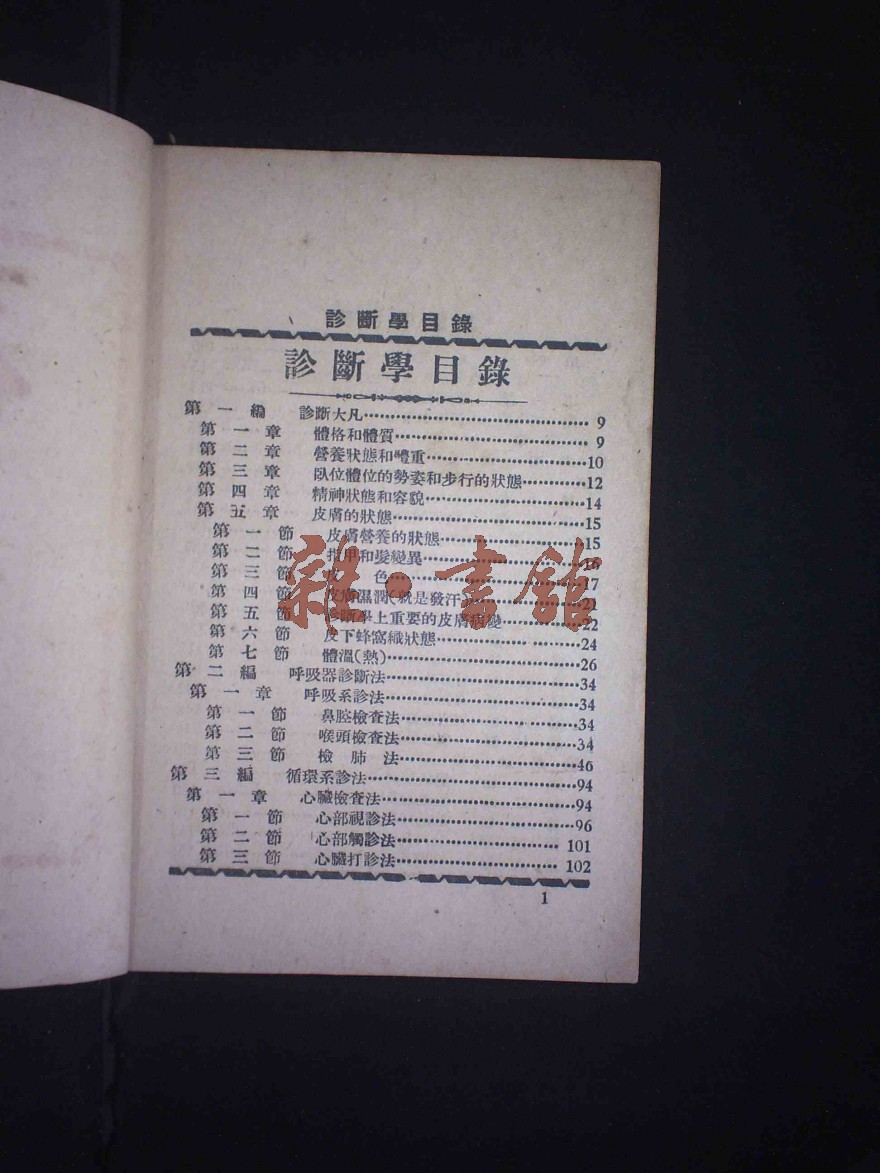 診斷學目錄
診斷學目錄
第一編 診斷大凡 9
第一章 體格和體質 9
第二章 營養狀態和體重 10
第三章 臥位體位的勢姿和步行的狀態 12
第四章 精神狀態和容貌 14
第五章 皮膚的狀態 15
第一節 皮膚營養的狀態 15
第二節 指甲和髮變異 16
第三節 皮色 17
第四節 皮膚濕潤(就是發汗) 21
第五節 診斷學上重要的皮膚病變 22
第六節 皮下蜂窩織狀態 24
第七節 體溫(熱) 26
第二編 呼吸器診斷法 34
第一章 呼吸系診法 34
第一節 鼻腔檢查法 34
第二節 喉頭檢查法 34
第三節 檢肺法 46
第三編 循環系診法 94
第一章 心臟檢查法 94
第一節 心部視診法 96
第二節 心部觸診法 101
第三節 心臟打診法 102
1
雜·書館